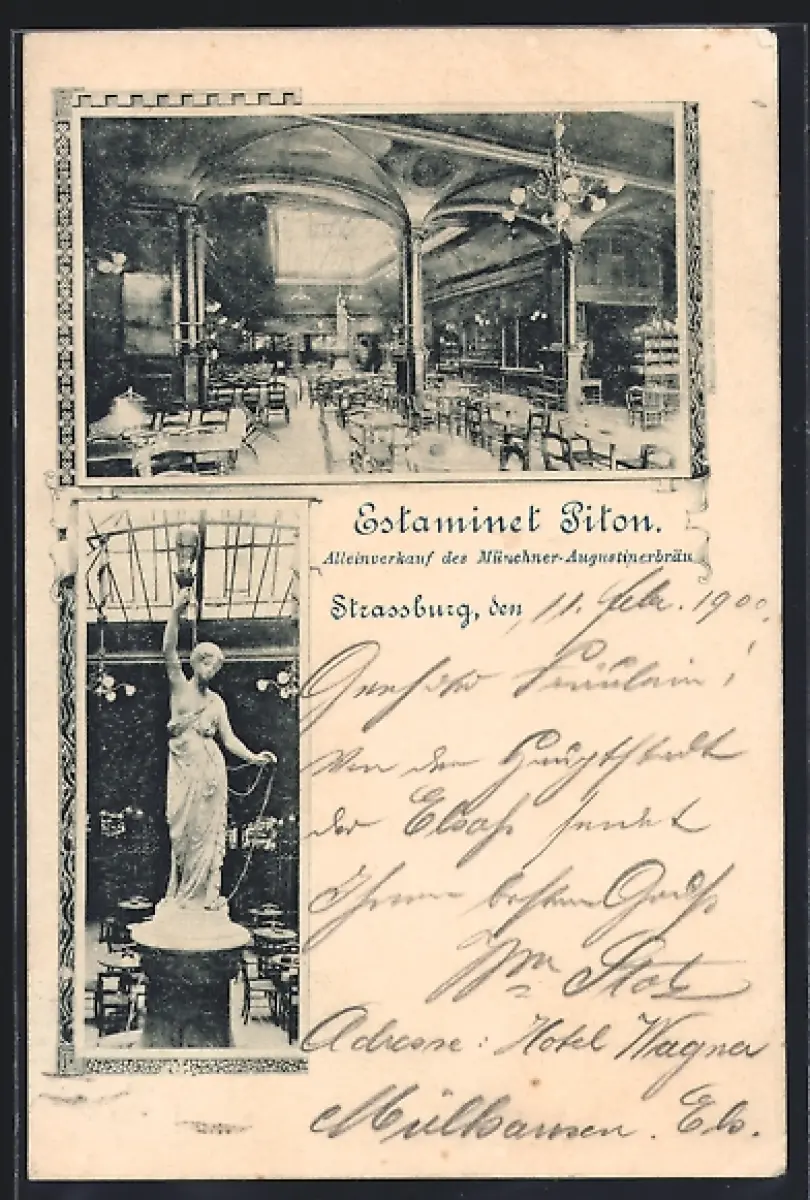 Estaminet Piton.
Alleinverkauf des Münchner-Augustinerbräu
Strassburg, den 11. Febr. 1900.
Fräulein!
Von der Hauptstadt
der Elsaß sendet
Ihnen besten Gruß
Wm Stotz
Adresse: Hotel Wagner
Mülhausen. Els.